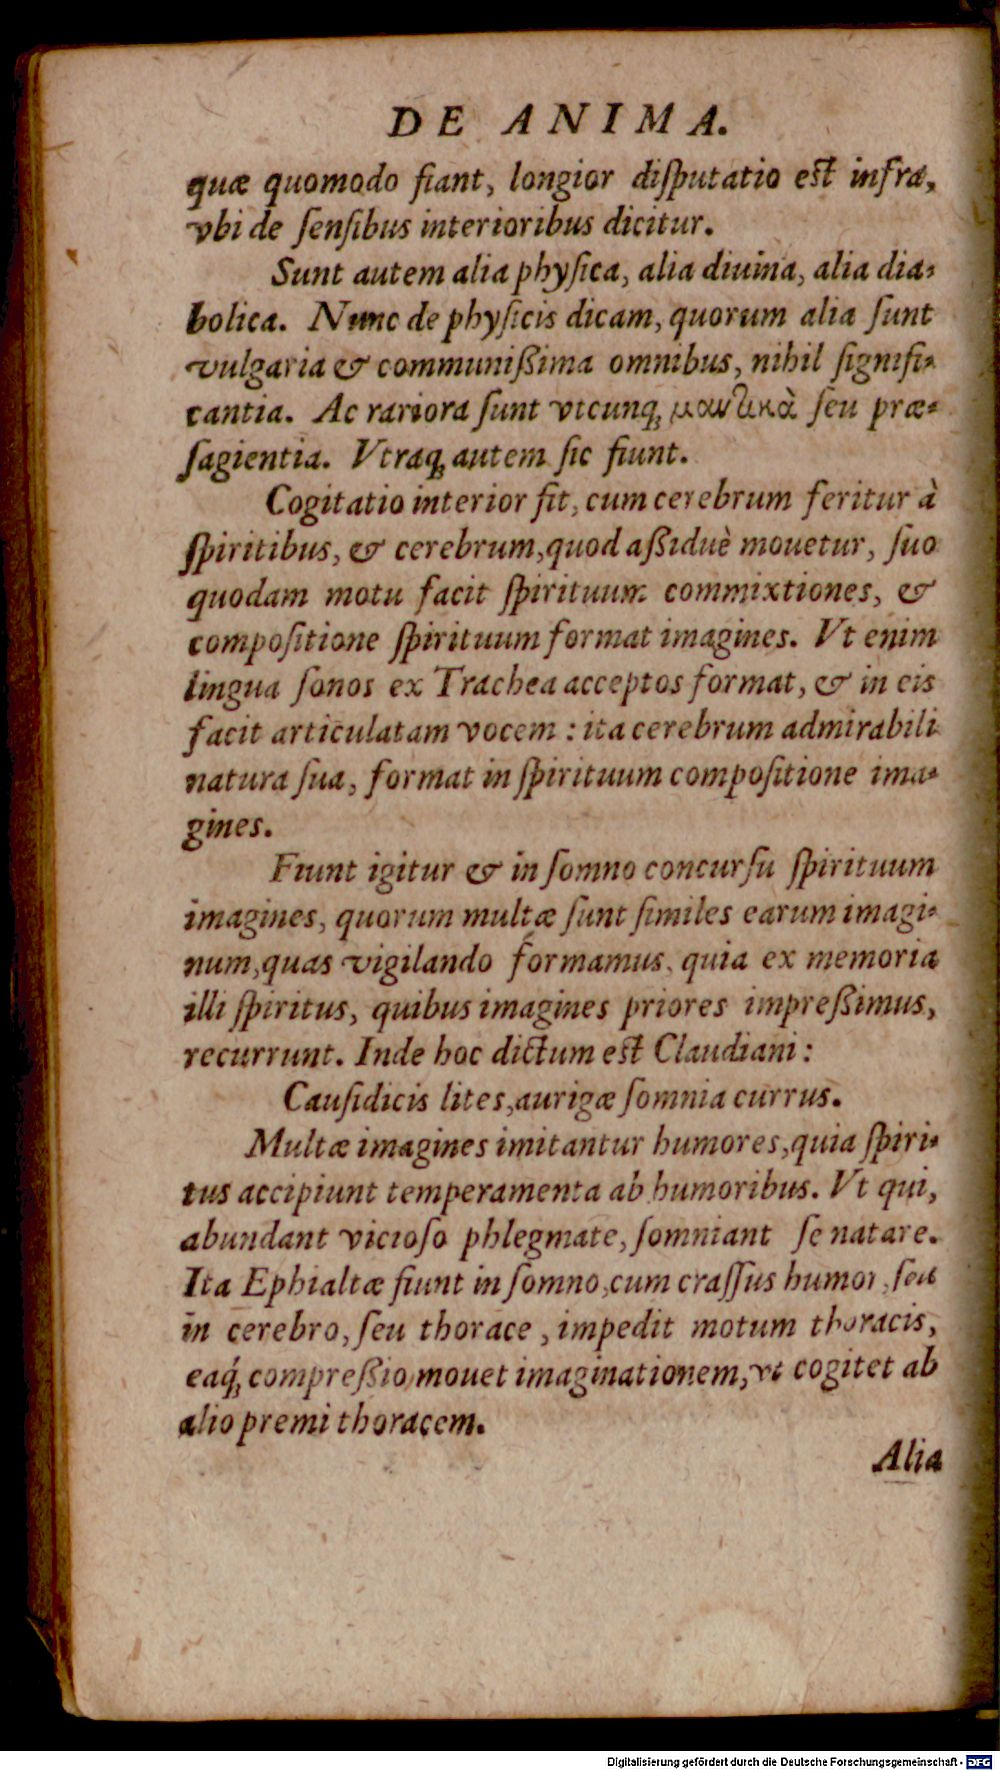 DE ANIMA.
quæ quomodo fiant, longior diſputatio eſt infra,
vbi de ſenſibus interioribus dicitur.
Sunt autem alia phyſica, alia diuina, alia dia-
bolica. Nunc de phyſicis dicam, quorum alia ſunt
vulgaria & communißima omnibus, nihil ſignifi-
cantia. Ac rariora ſunt vtcunq; μαντικὰ ſeu præ-
ſagientia. Vtraq; autem ſic fiunt.
Cogitatio interior fit, cum cerebrum feritur à
ſpiritibus, & cerebrum, quod aßiduè mouetur, ſuo
quodam motu facit ſpirituum commixtiones, &
compoſitione ſpirituum format imagines. Vt enim
lingua ſonos ex Trachea acceptos format, & in eis
facit articulatam vocem : ita cerebrum admirabili
natura ſua, format in ſpirituum compoſitione ima-
gines.
Fiunt igitur & in ſomno concurſu ſpirituum
imagines, quorum multæ ſunt ſimiles earum imagi-
num, quas vigilando formamus, quia ex memoria
illi ſpiritus, quibus imagines priores impreßimus,
recurrunt. Inde hoc dictum eſt Claudiani :
Cauſidicis lites, aurigæ ſomnia currus.
Multæ imagines imitantur humores, quia ſpiri-
tus accipiunt temperamenta ab humoribus. Vt qui,
abundant vicioſo phlegmate, ſomniant ſe natare.
Ita Ephialtæ fiunt in ſomno, cum craſſus humor, ſeu
in cerebro, ſeu thorace, impedit motum thoracis,
eaq́; compreßio mouet imaginationem, vt cogitet ab
alio premi thoracem.
Alia
Digitalisierung gefördert durch die Deutsche Forschungsgemeinschaft - DFG